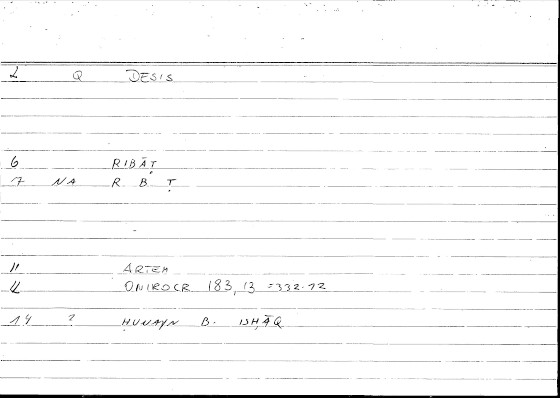 2 Q DESIS
6 RIBĀṬ
7 NA R B Ṭ
11 ARTEM
12 ONIROCR 183,13 =332.12
14 ? ḤUNAYN B. ISḤĀQ